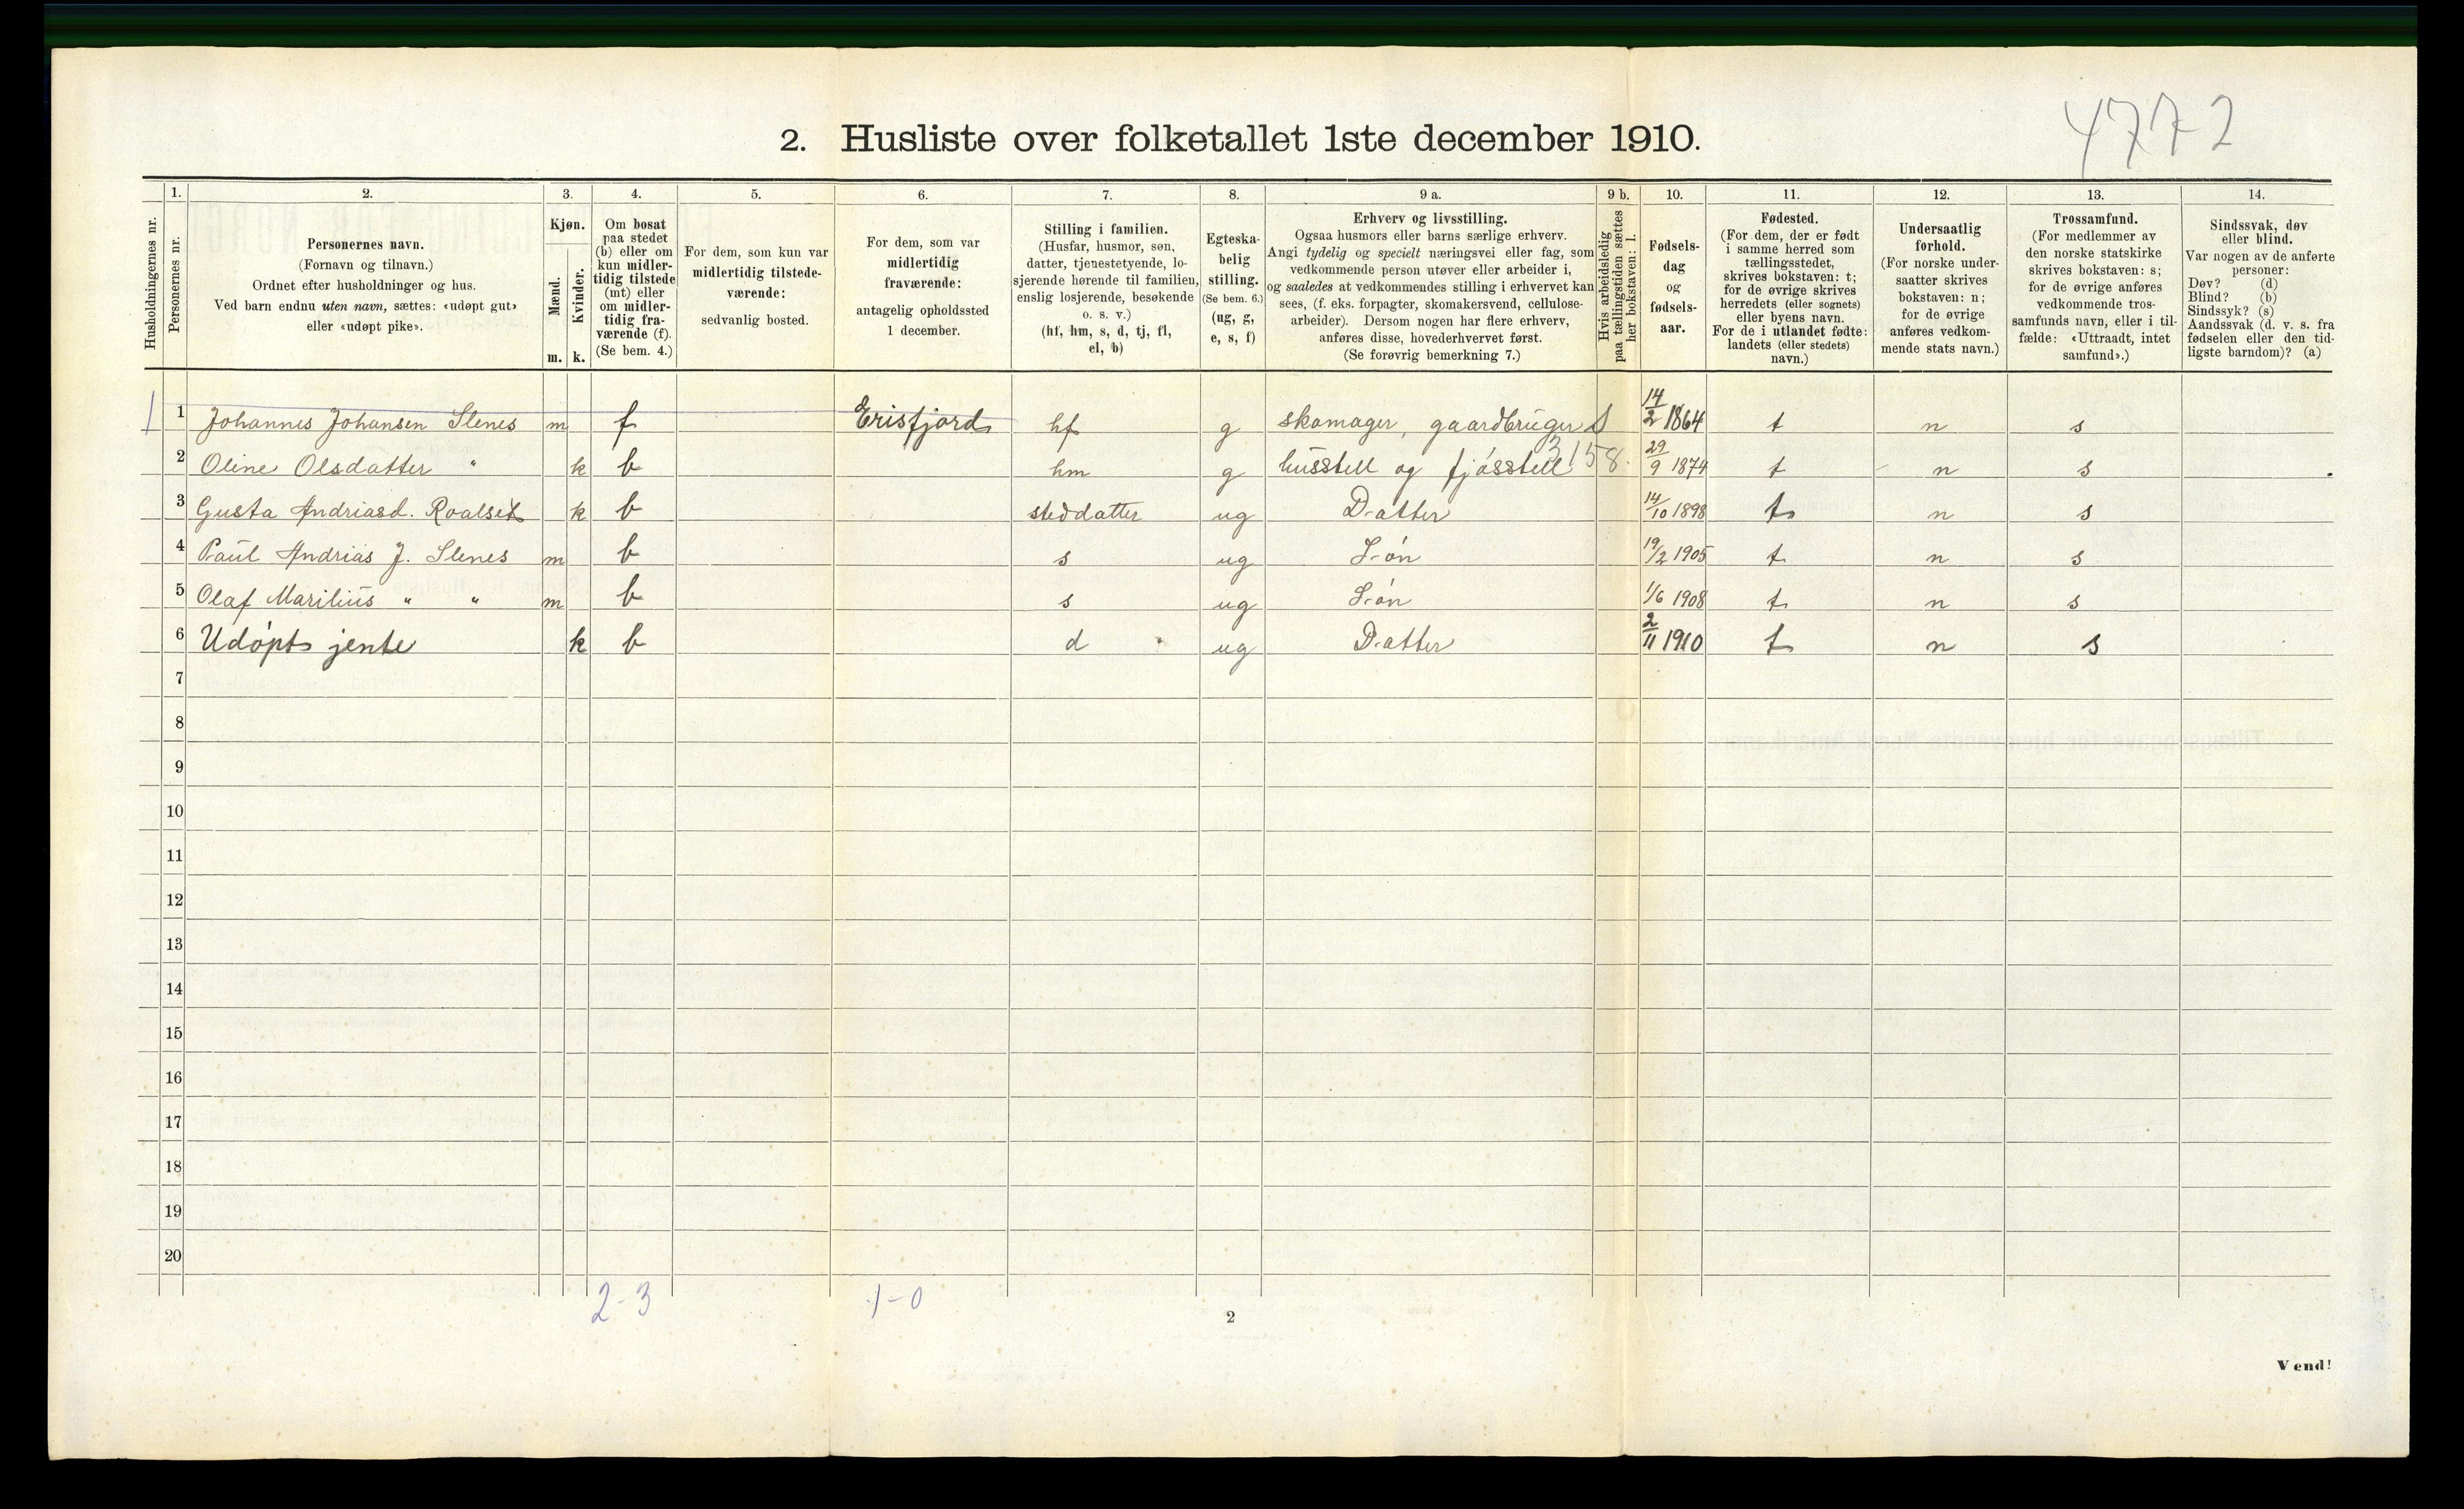 4772
2. Husliste over folketallet 1ste december 1910.
Husholdningernes nr.
1. Personernes nr.
2. Personernes navn. (Fornavn og tilnavn.) Ordnet efter husholdninger og hus. Ved barn endnu uten navn, sættes: «udøpt gut» eller «udøpt pike».
3. Kjøn. Mænd. m. Kvinder. k.
4. Om bosat paa stedet (b) eller om kun midlertidig tilstede (mt) eller om midlertidig fraværende (f). (Se bem. 4.)
5. For dem, som kun var midlertidig tilstedeværende: sedvanlig bosted.
6. For dem, som var midlertidig fraværende: antagelig opholdssted 1 december.
7. Stilling i familien. (Husfar, husmor, søn, datter, tjenestetyende, losjerende hørende til familien, enslig losjerende, besøkende o. s. v.) (hf, hm, s, d, tj, fl, el, b)
8. Egteskabelig stilling. (Se bem. 6.) (ug, g, e, s, f)
9 a. Erhverv og livsstilling. Ogsaa husmors eller barns særlige erhverv. Angi tydelig og specielt næringsvei eller fag, som vedkommende person utøver eller arbeider i, og saaledes at vedkommendes stilling i erhvervet kan sees, (f. eks. forpagter, skomakersvend, cellulosearbeider). Dersom nogen har flere erhverv, anføres disse, hovederhvervet først. (Se forøvrig bemerkning 7.)
9 b. Hvis arbeidsledig paa tællingstiden sættes her bokstaven: l.
10. Fødselsdag og fødselsaar.
11. Fødested. (For dem, der er født i samme herred som tællingsstedet, skrives bokstaven: t; for de øvrige skrives herredets (eller sognets) eller byens navn. For de i utlandet fødte: landets (eller stedets) navn.)
12. Undersaatlig forhold. (For norske undersaatter skrives bokstaven: n; for de øvrige anføres vedkommende stats navn.)
13. Trossamfund. (For medlemmer av den norske statskirke skrives bokstaven: s; for de øvrige anføres vedkommende trossamfunds navn, eller i tilfælde: «Uttraadt, intet samfund».)
14. Sindssvak, døv eller blind. Var nogen av de anførte personer: Døv? (d) Blind? (b) Sindssyk? (s) Aandssvak (d. v. s. fra fødselen eller den tidligste barndom)? (a)
1 1 Johannes Johansen Slenes m f Erisfjord hf g skomager, gaardbruger S 14/2 1864 t n s
2 Oline Olsdatter " k b hm g husstell og fjósstell 3158. 29/9 1874 t n s
3 Gusta Andriasd. Roalset k b steddatter ug Datter 14/10 1898 t n s
4 Paul Andrias J. Slenes m b s ug Són 19/2 1905 t n s
5 Olaf Marilius " " m b s ug Són 1/6 1908 t n s
6 Udópt jente k b d ug Datter 2/11 1910 t n s
7
8
9
10
11
12
13
14
15
16
17
18
19
20
2-3 1-0
2
Vend!